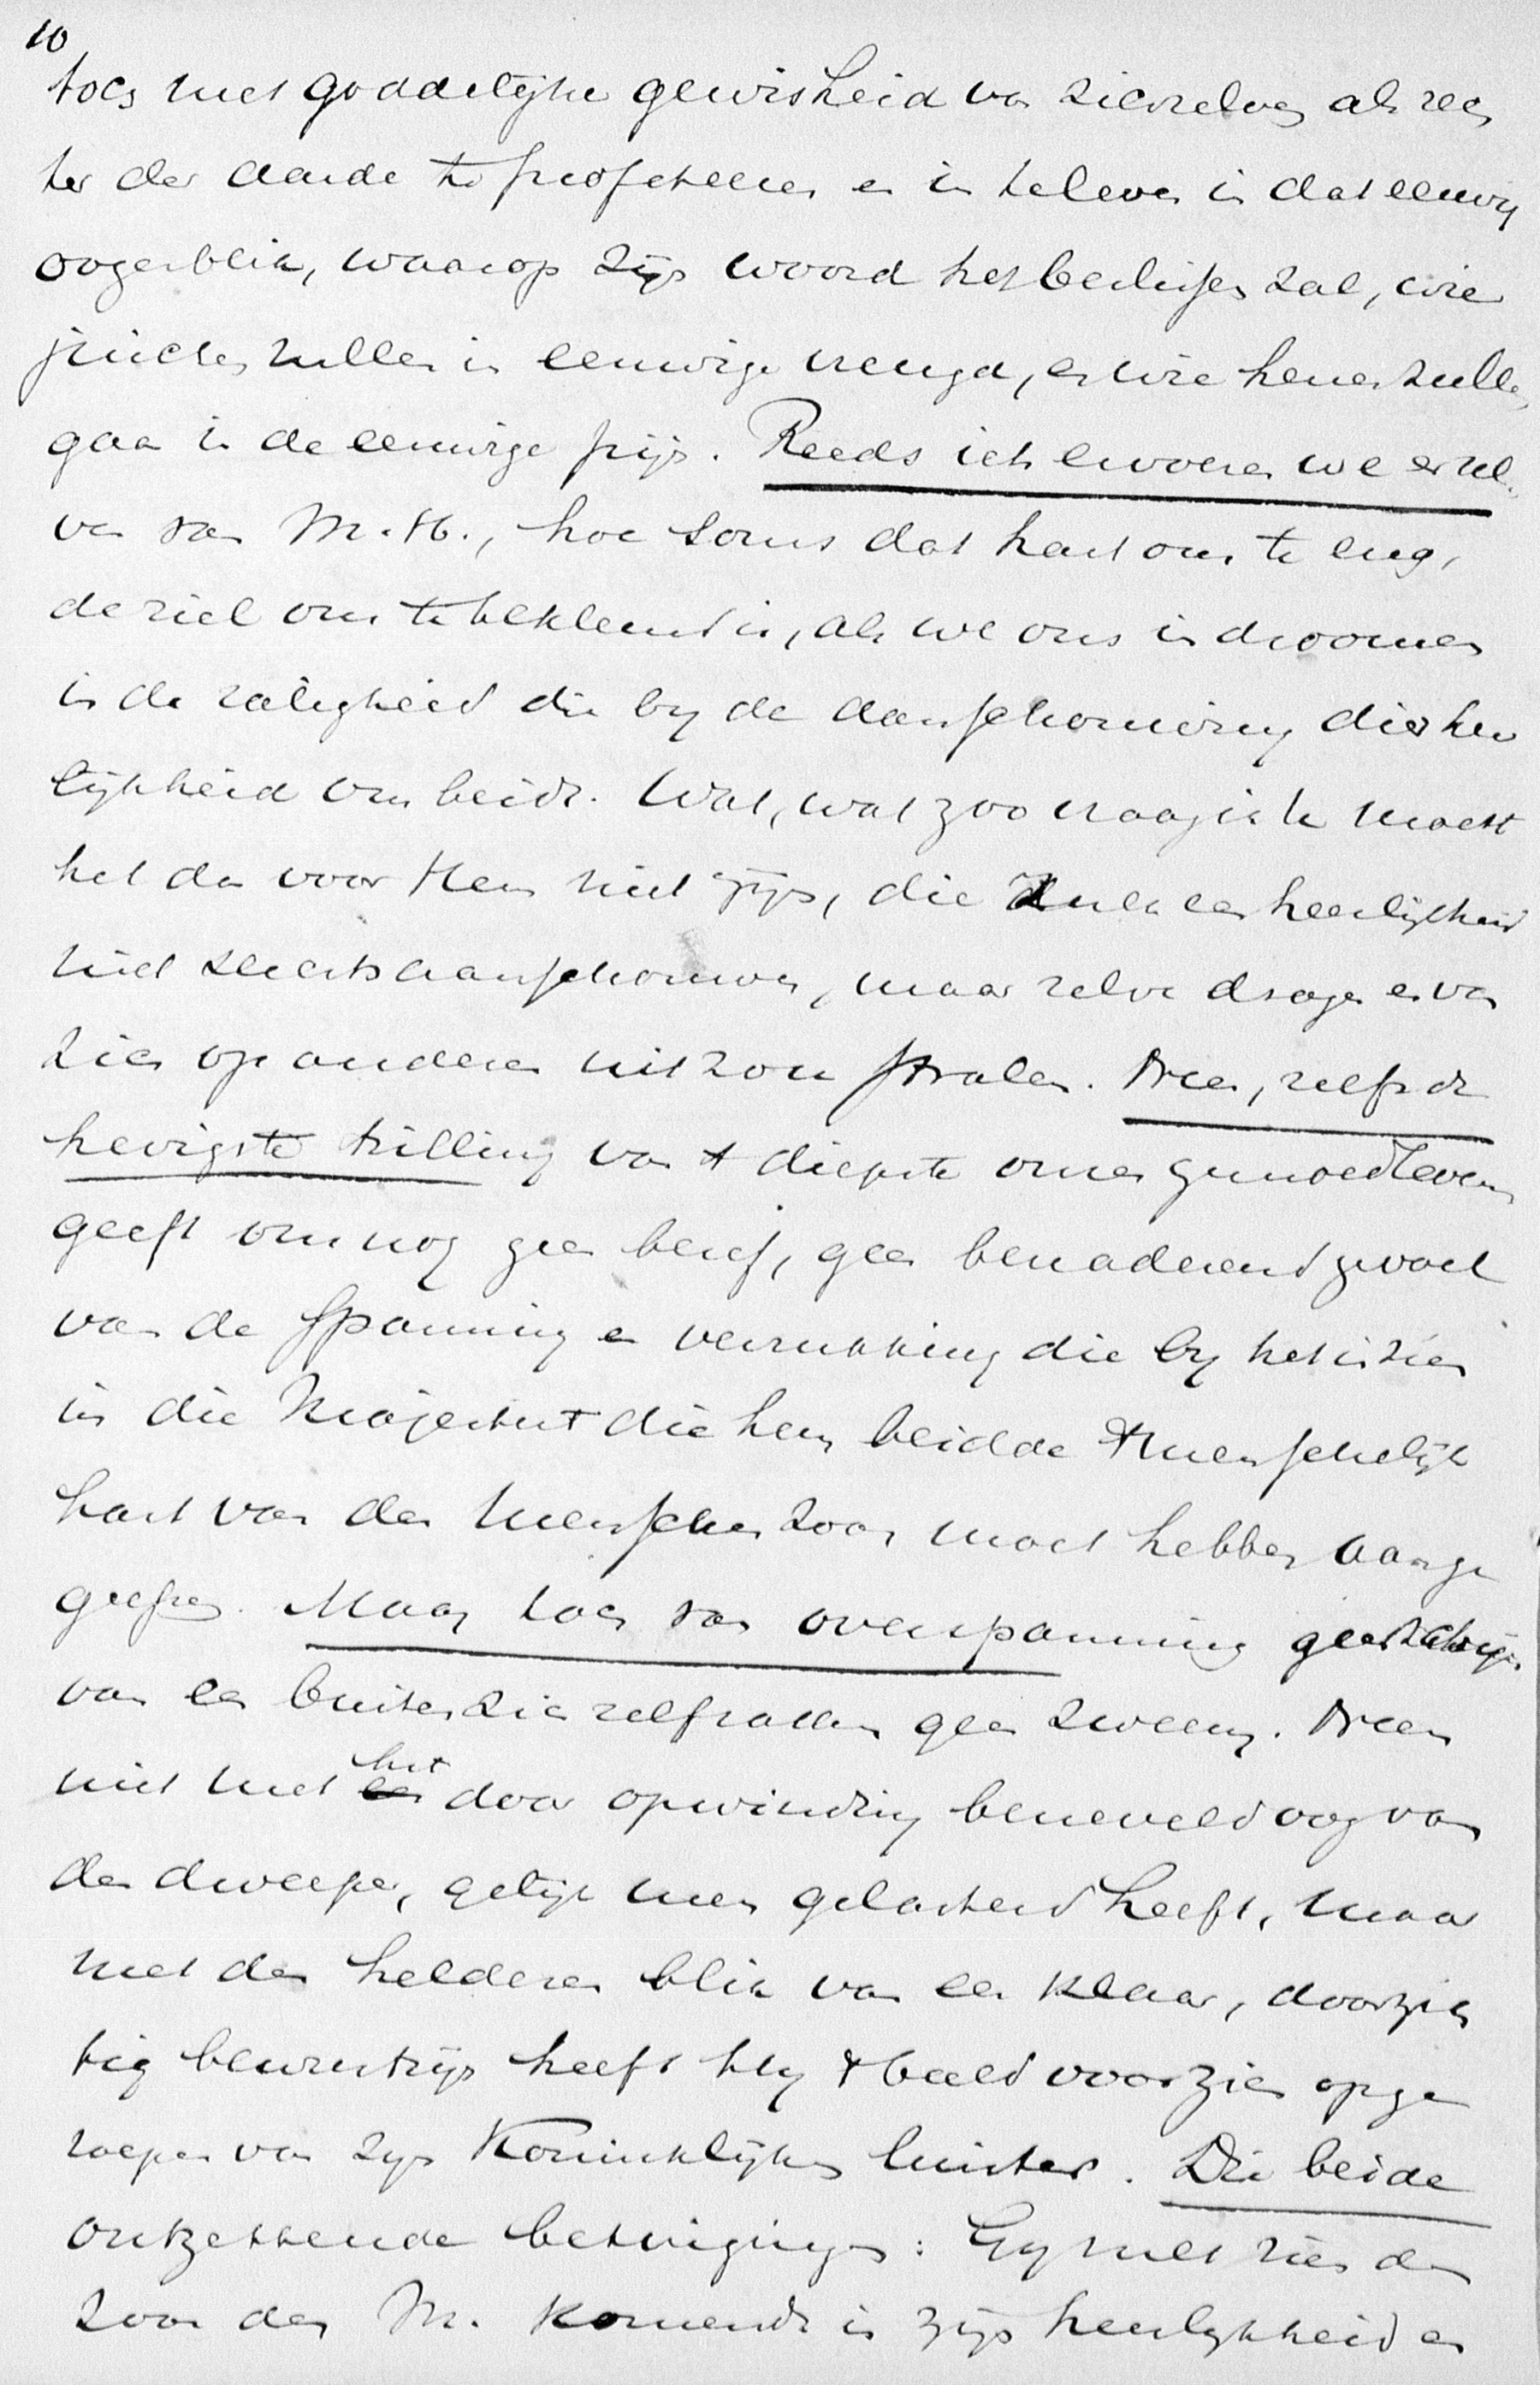 10
toch met goddelijke gewisheid van zichzelven als rech
ter der aarde te profeteeren en in te leven in dat eeuwig
oogenblik, waarop zijn woord het beslissen zal, wie
juichen zullen in eeuwige vreugd, en wie henen zullen
gaan in de eeuwige pijn. Reeds ich ervoeren we er zel-
ven van M.H., hoe soms dat hart ons te eng,
de ziel ons te beklemd is, als we ons indroomen
in de zaligheid die bij de aanschouwing dier heer
lijkheid ons beidt. Wat, wat zoo vraag ik moest
het dan voor Hem niet zijn, die zulk een heerlijkheid
niet slechts aanschouwen, maar zelve dragen en van
zich op anderen uit zou stralen. Neen, zelfs de
hevigste trilling van 't diepste onzer gemoedslevens
geeft ons nog geen besef, geen benaderend gevoel
van de spanning en verrukking die bij het inzien
in die Majesteit die hem beidde 't menschelijk
hart van den Menschenzoon moet hebben aange
grepen. Maar toch van overspanning geen
van een buiten zich zelf vallen geen zweem. Neen
niet met het door opwinding beneveld oog van
den dweeper, gelijk men gelasterd heeft, maar
met den helderen blik van een klaar, doorzich
tig bewustzijn heeft hij 't beeld voor zich opge
roepen van zijn Koninklijken luister. Die beide
ontzettende betuigingen: Gij zult zien den
Zoon des M. komende in zijn heerlijkheid en